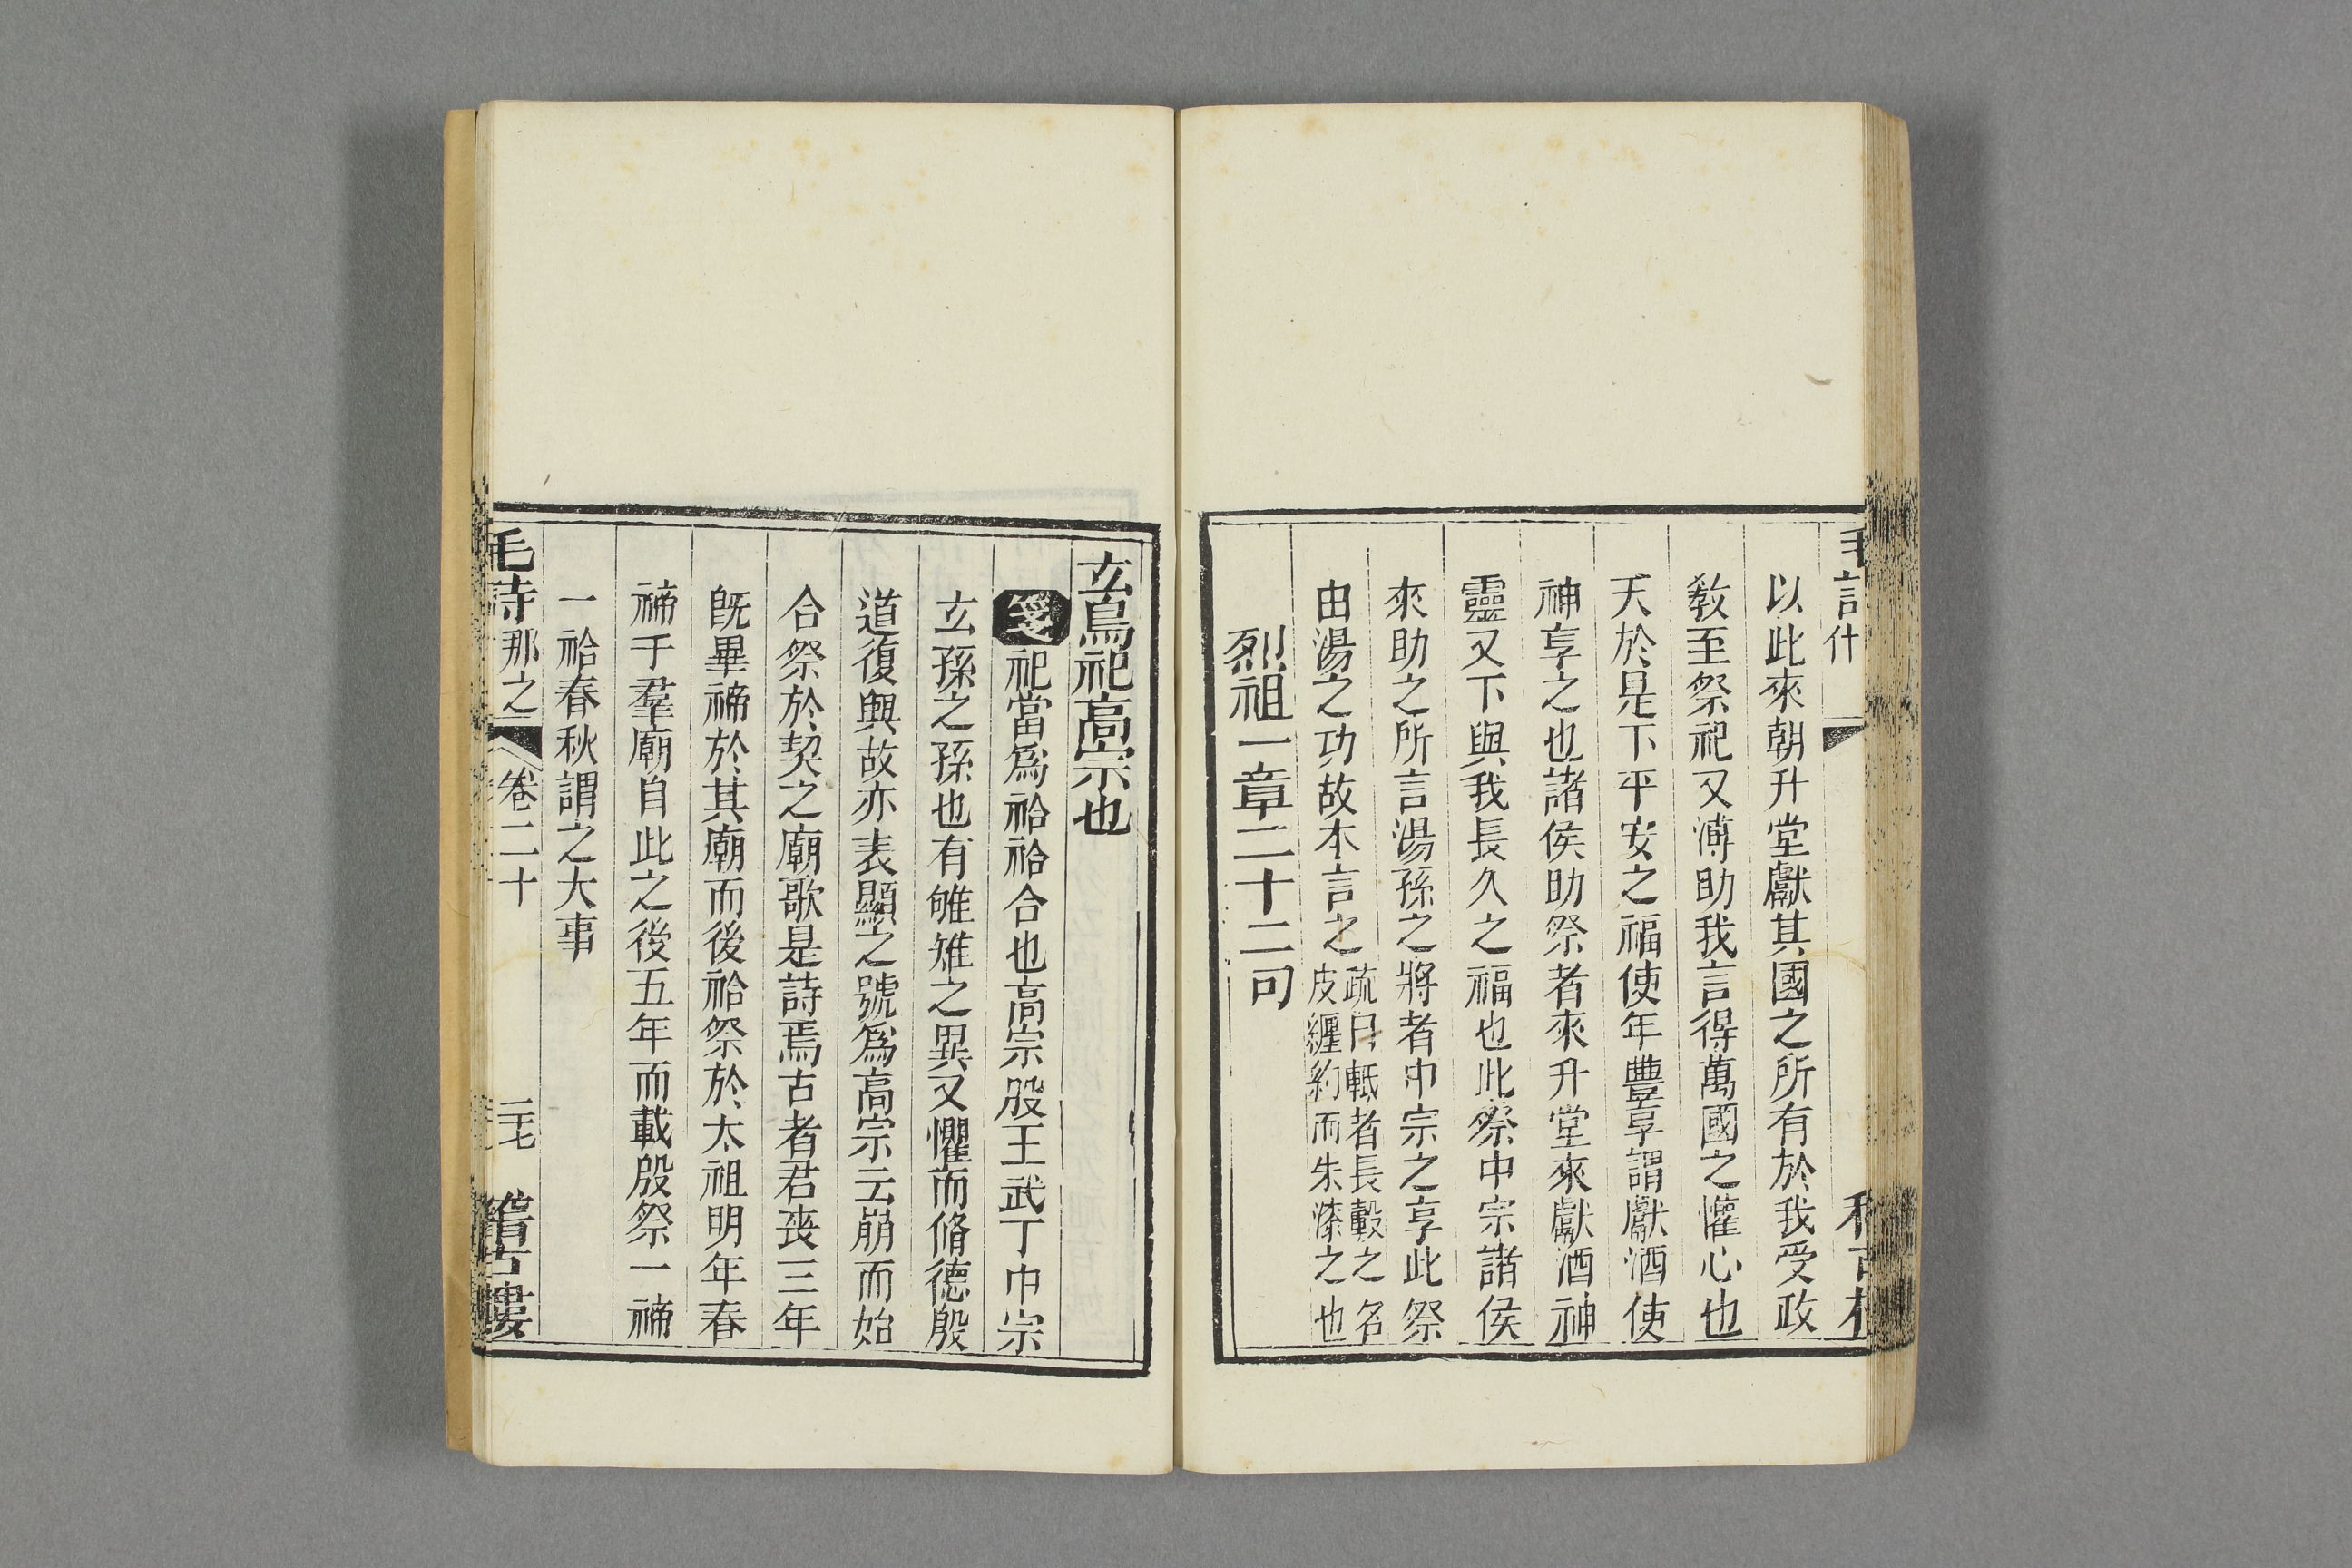 以此來朝升堂獻其國之所有於我受政
敎至祭祀又溥助我言得萬國之懽心也
天於是下平安之福使年豐享謂獻酒使
神享之也諸侯助祭者來升堂來獻酒神
靈又下與我長久之福也此祭中宗諸侯
來助之所言湯孫之將者中宗之享此祭
由湯之功故本言之疏曰軧者長轂之名皮纏約而朱漆之也
烈祖一章二十二句
玄鳥祀高宗也
箋祀當爲祫祫合也高宗殷王武丁中宗
玄孫之孫也有雊雉之異又懼而脩德殷
道復興故亦表顯之號爲高宗云崩而始
合祭於契之廟歌是詩焉古者君喪三年
旣畢禘於其廟而後祫祭於太祖明年春
禘于羣廟自此之後五年而載殷祭一禘
一祫春秋謂之大事
毛詩 那之 卷二十 二七 稽古樓